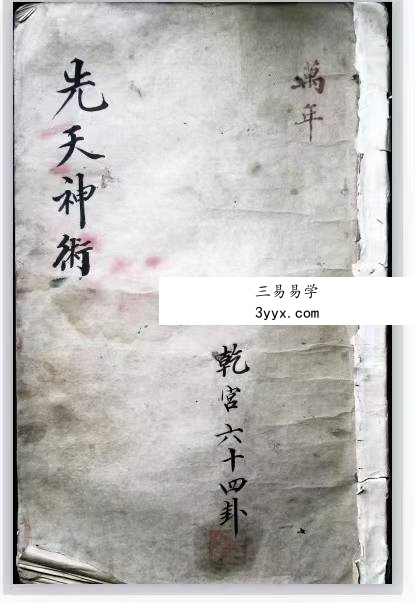 萬年
先天神術
三易易学
3yyx.com
乾宮六十四卦